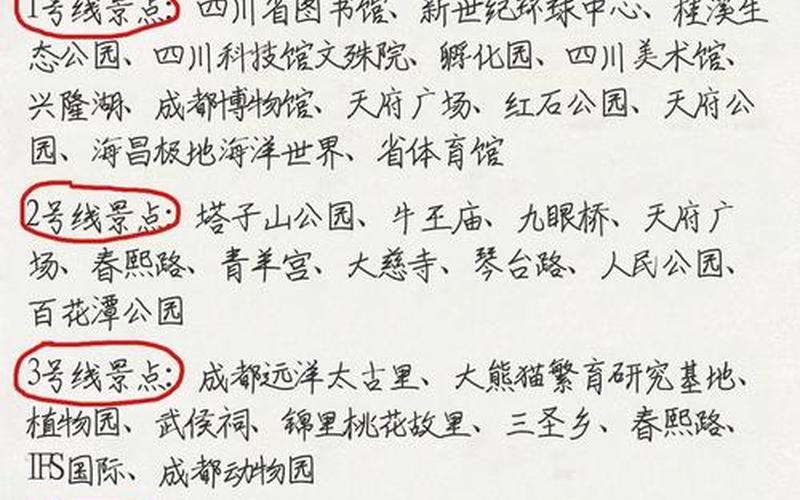 1号线景点: 四川省图书馆、新世纪环球中心、桂溪生
态公园、四川科技馆文殊院、孵化园、四川美术馆、
兴隆湖、成都博物馆、天府广场、红石公园、天府公
园、海昌极地海洋世界、省体育馆
2号线景点: 塔子山公园、牛王庙、九眼桥、天府广
场、春熙路、青羊宫、大慈寺、琴台路、人民公园、
百花潭公园
3号线景点: 成都远洋太古里、大熊猫繁育研究基地、
植物园、武侯祠、锦里桃花故里、三圣乡、春熙路、
IFS国际、成都动物园